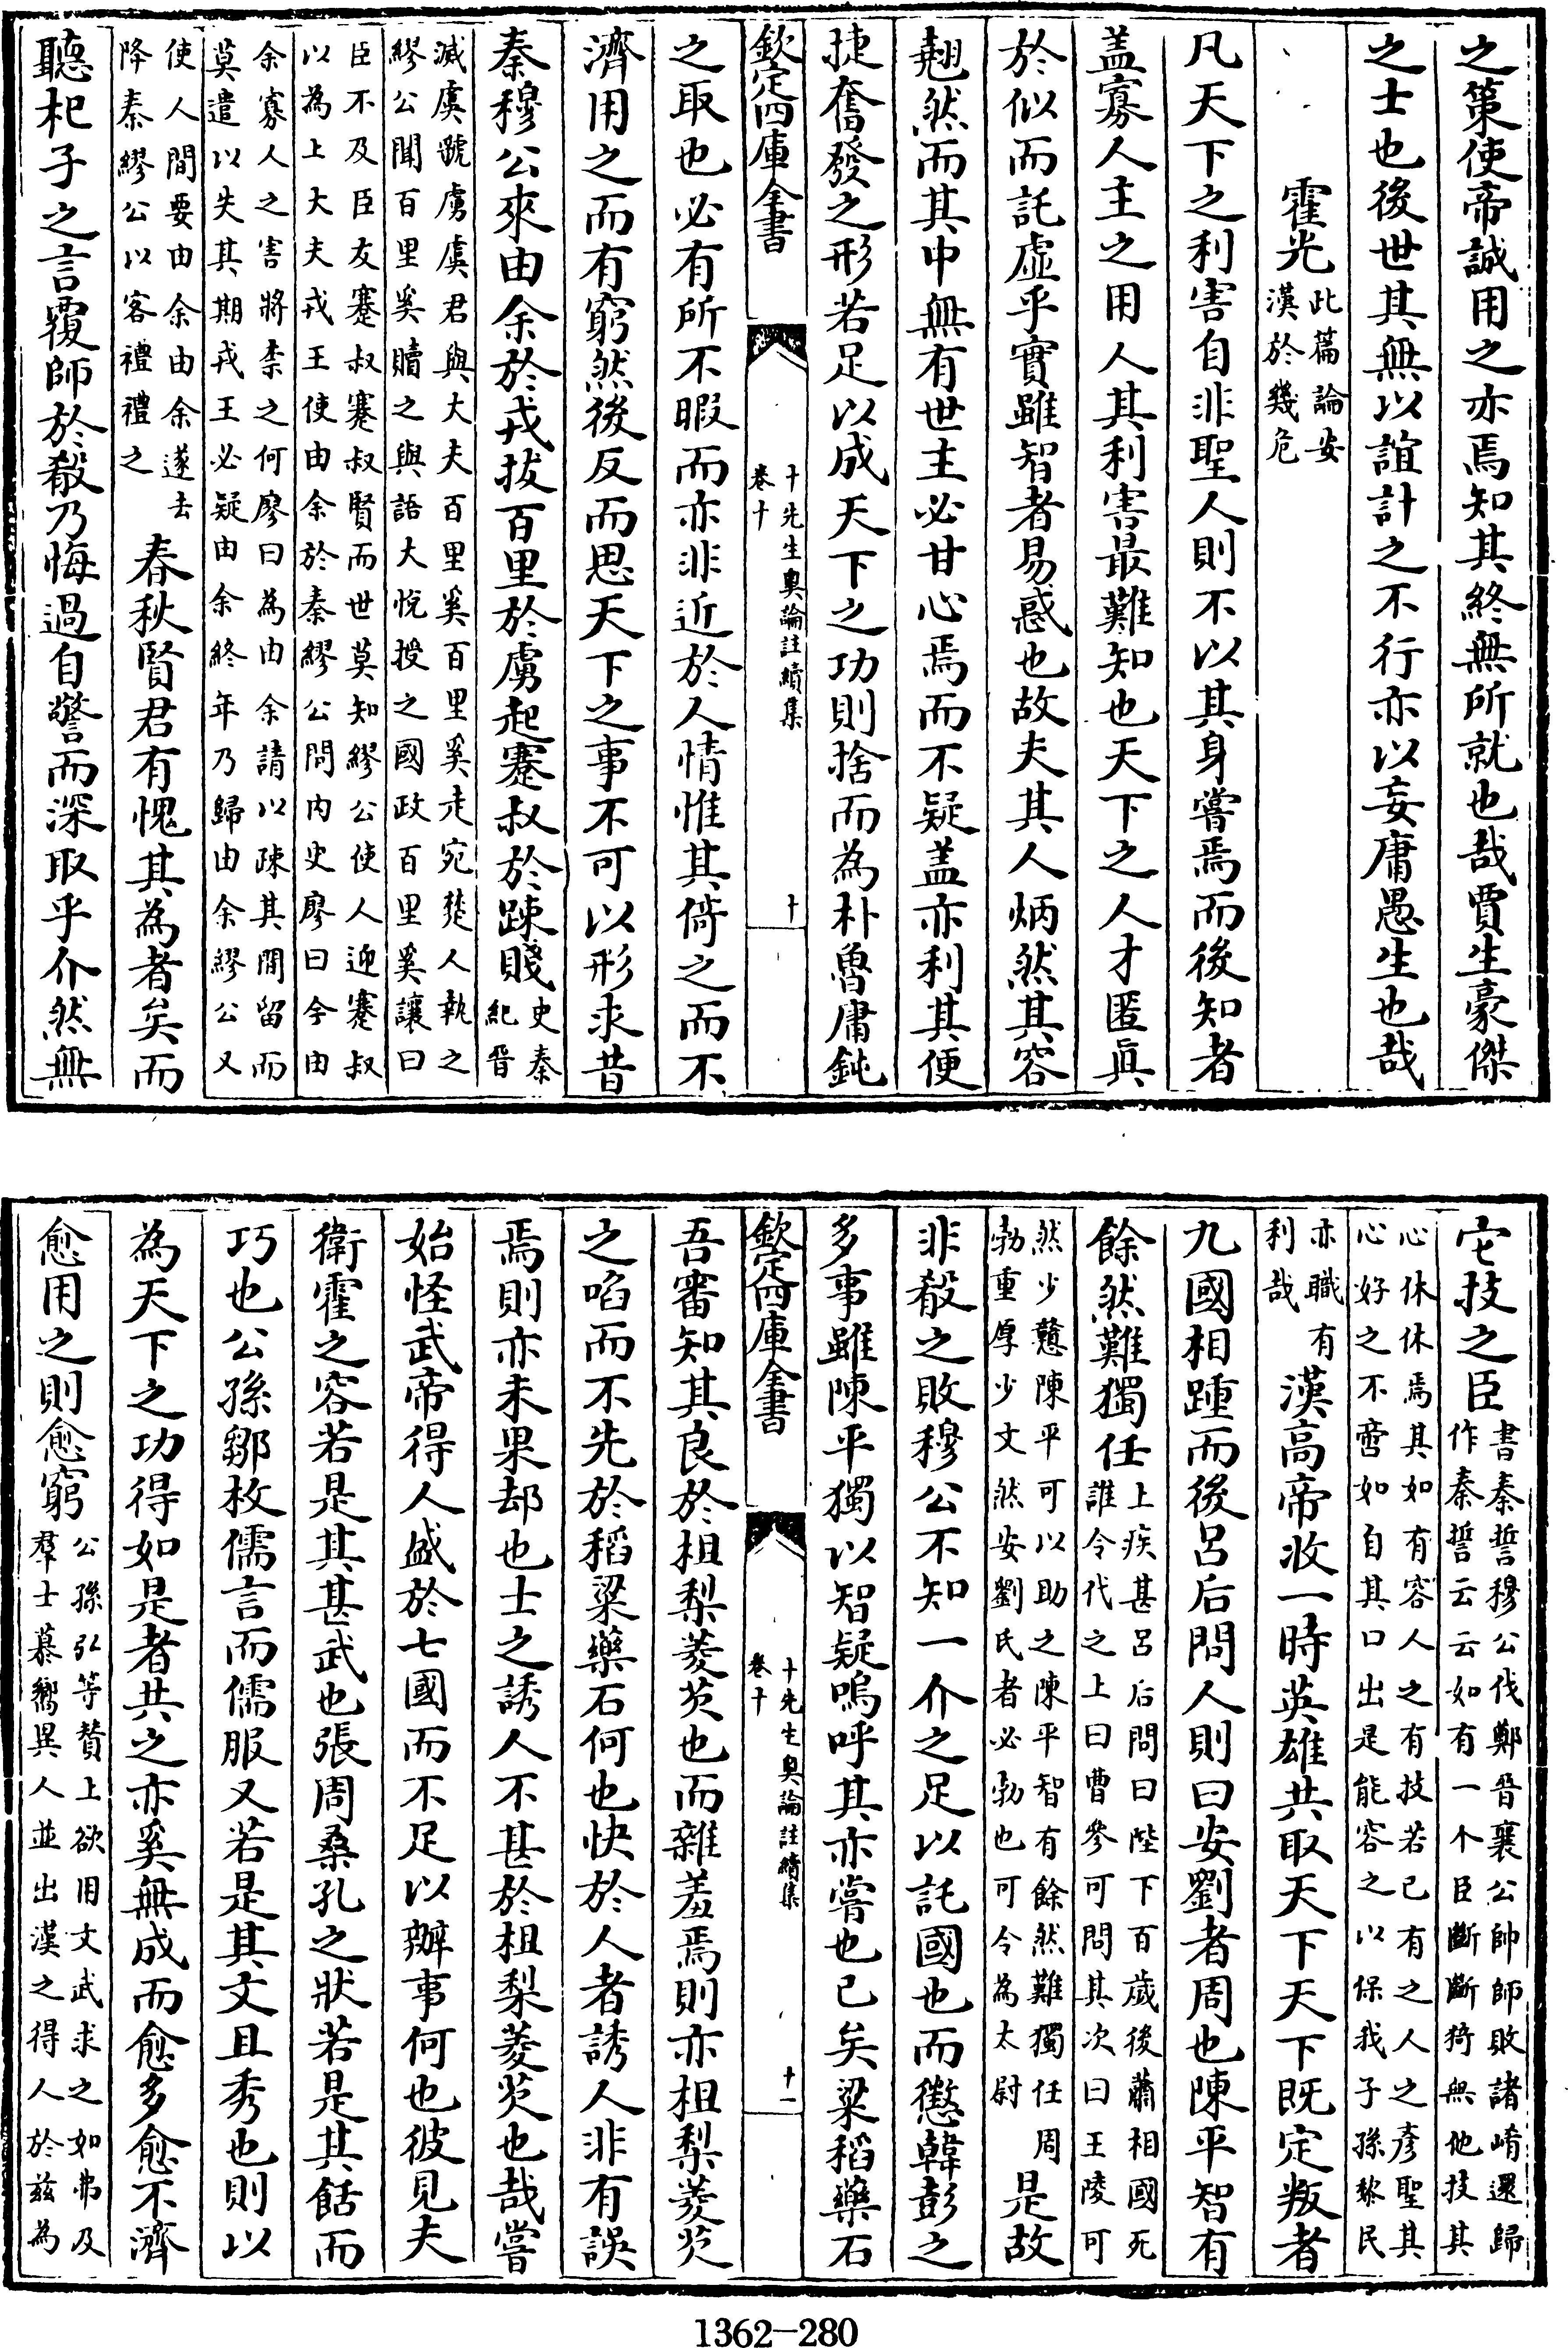 之策使帝誠用之亦焉知其終無所就也哉賈生豪傑
之士也後世其無以誼計之不行亦以妄庸愚生也哉
霍光此篇論安漢於幾危
凡天下之利害自非聖人則不以其身嘗焉而後知者
盖寡人主之用人其利害最難知也天下之人才匿真
於似而託虛乎實雖智者易惑也故夫其人炳然其容
翹然而其中無有世主必甘心焉而不疑盖亦利其便
捷奮發之形若足以成天下之功則捨而為朴魯庸鈍
欽定四庫全書
十先生奥論註續集
卷十
十
之取也必有所不暇而亦非近於人情惟其倚之而不
濟用之而有窮然後反而思天下之事不可以形求昔
秦穆公來由余於戎拔百里於虜起蹇叔於踈賤史秦紀晉
滅虞虢虜虞君與大夫百里奚百里奚走宛楚人執之
繆公聞百里奚贖之與語大悅授之國政百里奚讓曰
臣不及臣友蹇叔蹇叔賢而世莫知繆公使人迎蹇叔
以為上大夫戎王使由余於秦繆公問内史廖曰今由
余寡人之害將柰之何廖曰為由余請以疎其間留而
莫遣以失其期戎王必疑由余終年乃歸由余繆公又
使人間要由余由余遂去
降秦繆公以客禮禮之
春秋賢君有愧其為者矣而
聽杞子之言覆師於殽乃悔過自警而深取乎介然無
它技之臣書秦誓穆公伐鄭晉襄公帥師敗諸崤還歸
作秦誓云云如有一个臣斷斷猗無他技其
心休休焉其如有容人之有技若已有之人之彦聖其
心好之不啻如自其口出是能容之以保我子孫黎民
亦職有
利哉
漢高帝收一時英雄共取天下天下既定叛者
九國相踵而後呂后問人則曰安劉者周也陳平智有
餘然難獨任上疾甚呂后問曰陛下百歲後蕭相國死
誰令代之上曰曹參可問其次曰王陵可
然少戇陳平可以助之陳平智有餘然難獨任周
勃重厚少文然安劉氏者必勃也可令為太尉
是故
非殽之敗穆公不知一介之足以託國也而懲韓彭之
多事雖陳平獨以智疑嗚呼其亦嘗也已矣粱稻藥石
欽定四庫全書
十先生奥論註續集
卷十
十一
吾審知其良於柤梨菱芡也而雜羞焉則亦柤梨菱芡
之啗而不先於稻粱藥石何也快於人者誘人非有誤
焉則亦未果却也士之誘人不甚於柤梨菱芡也哉嘗
始怪武帝得人盛於七國而不足以辦事何也彼見夫
衛霍之容若是其甚武也張周桑孔之狀若是其餂而
巧也公孫鄒枚儒言而儒服又若是其文且秀也則以
為天下之功得如是者共之亦奚無成而愈多愈不濟
愈用之則愈窮公孫弘等賛上欲用文武求之如弗及
羣士慕嚮異人並出漢之得人於兹為
1362-280